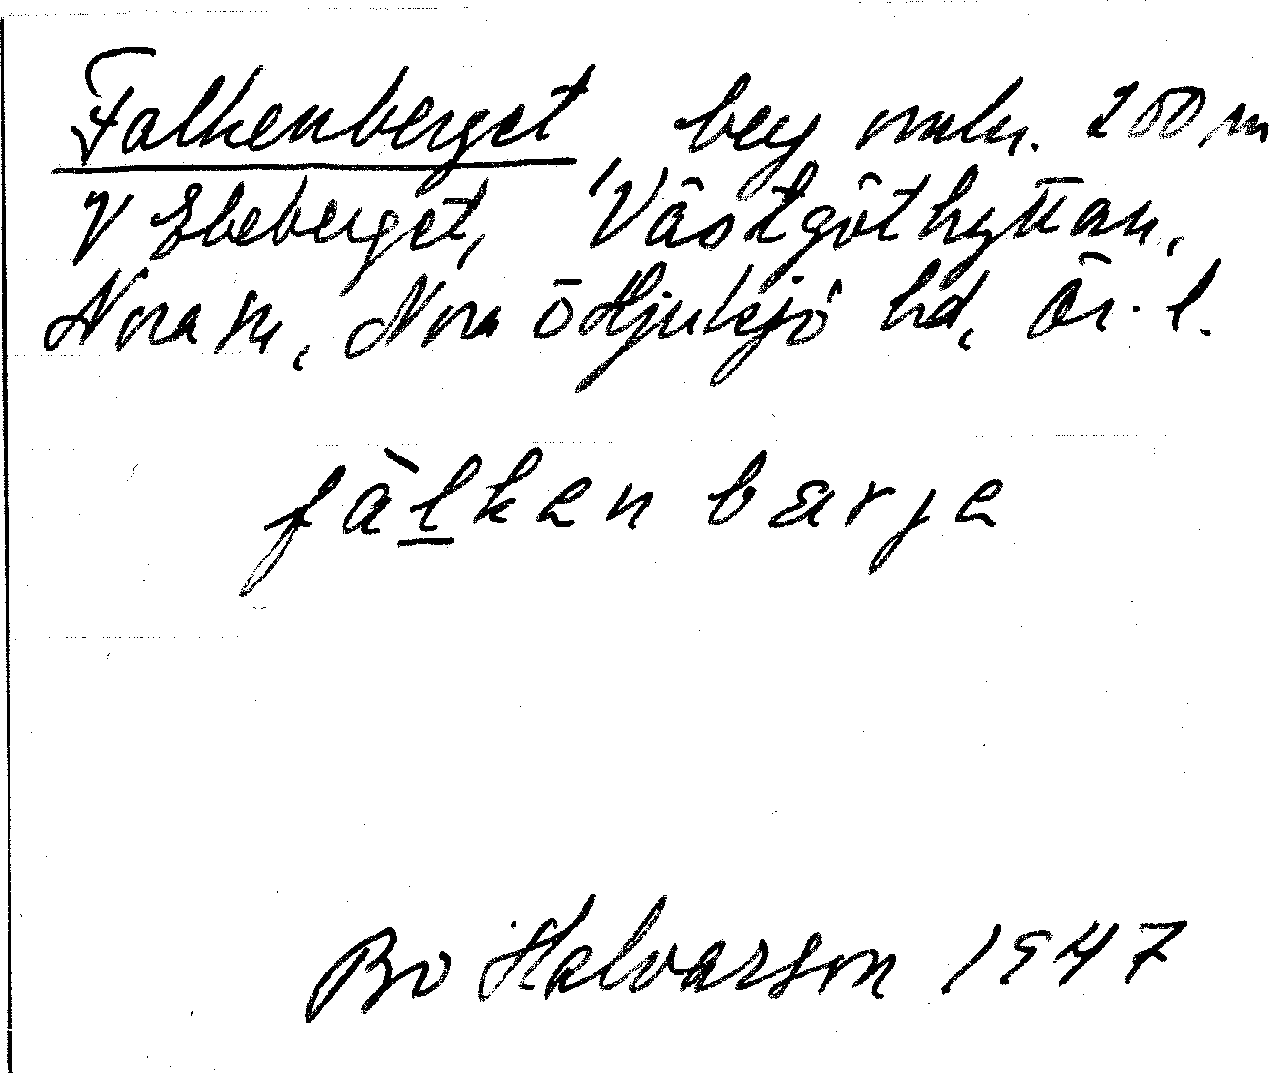 Falkenberget, beg omkr. 200 m
V Ekeberget, Västgöthyttan,
Nora sn, Nora o Hjulsjö hd, Ör. l.
fàlken bærje
Bo Halvarson 1947